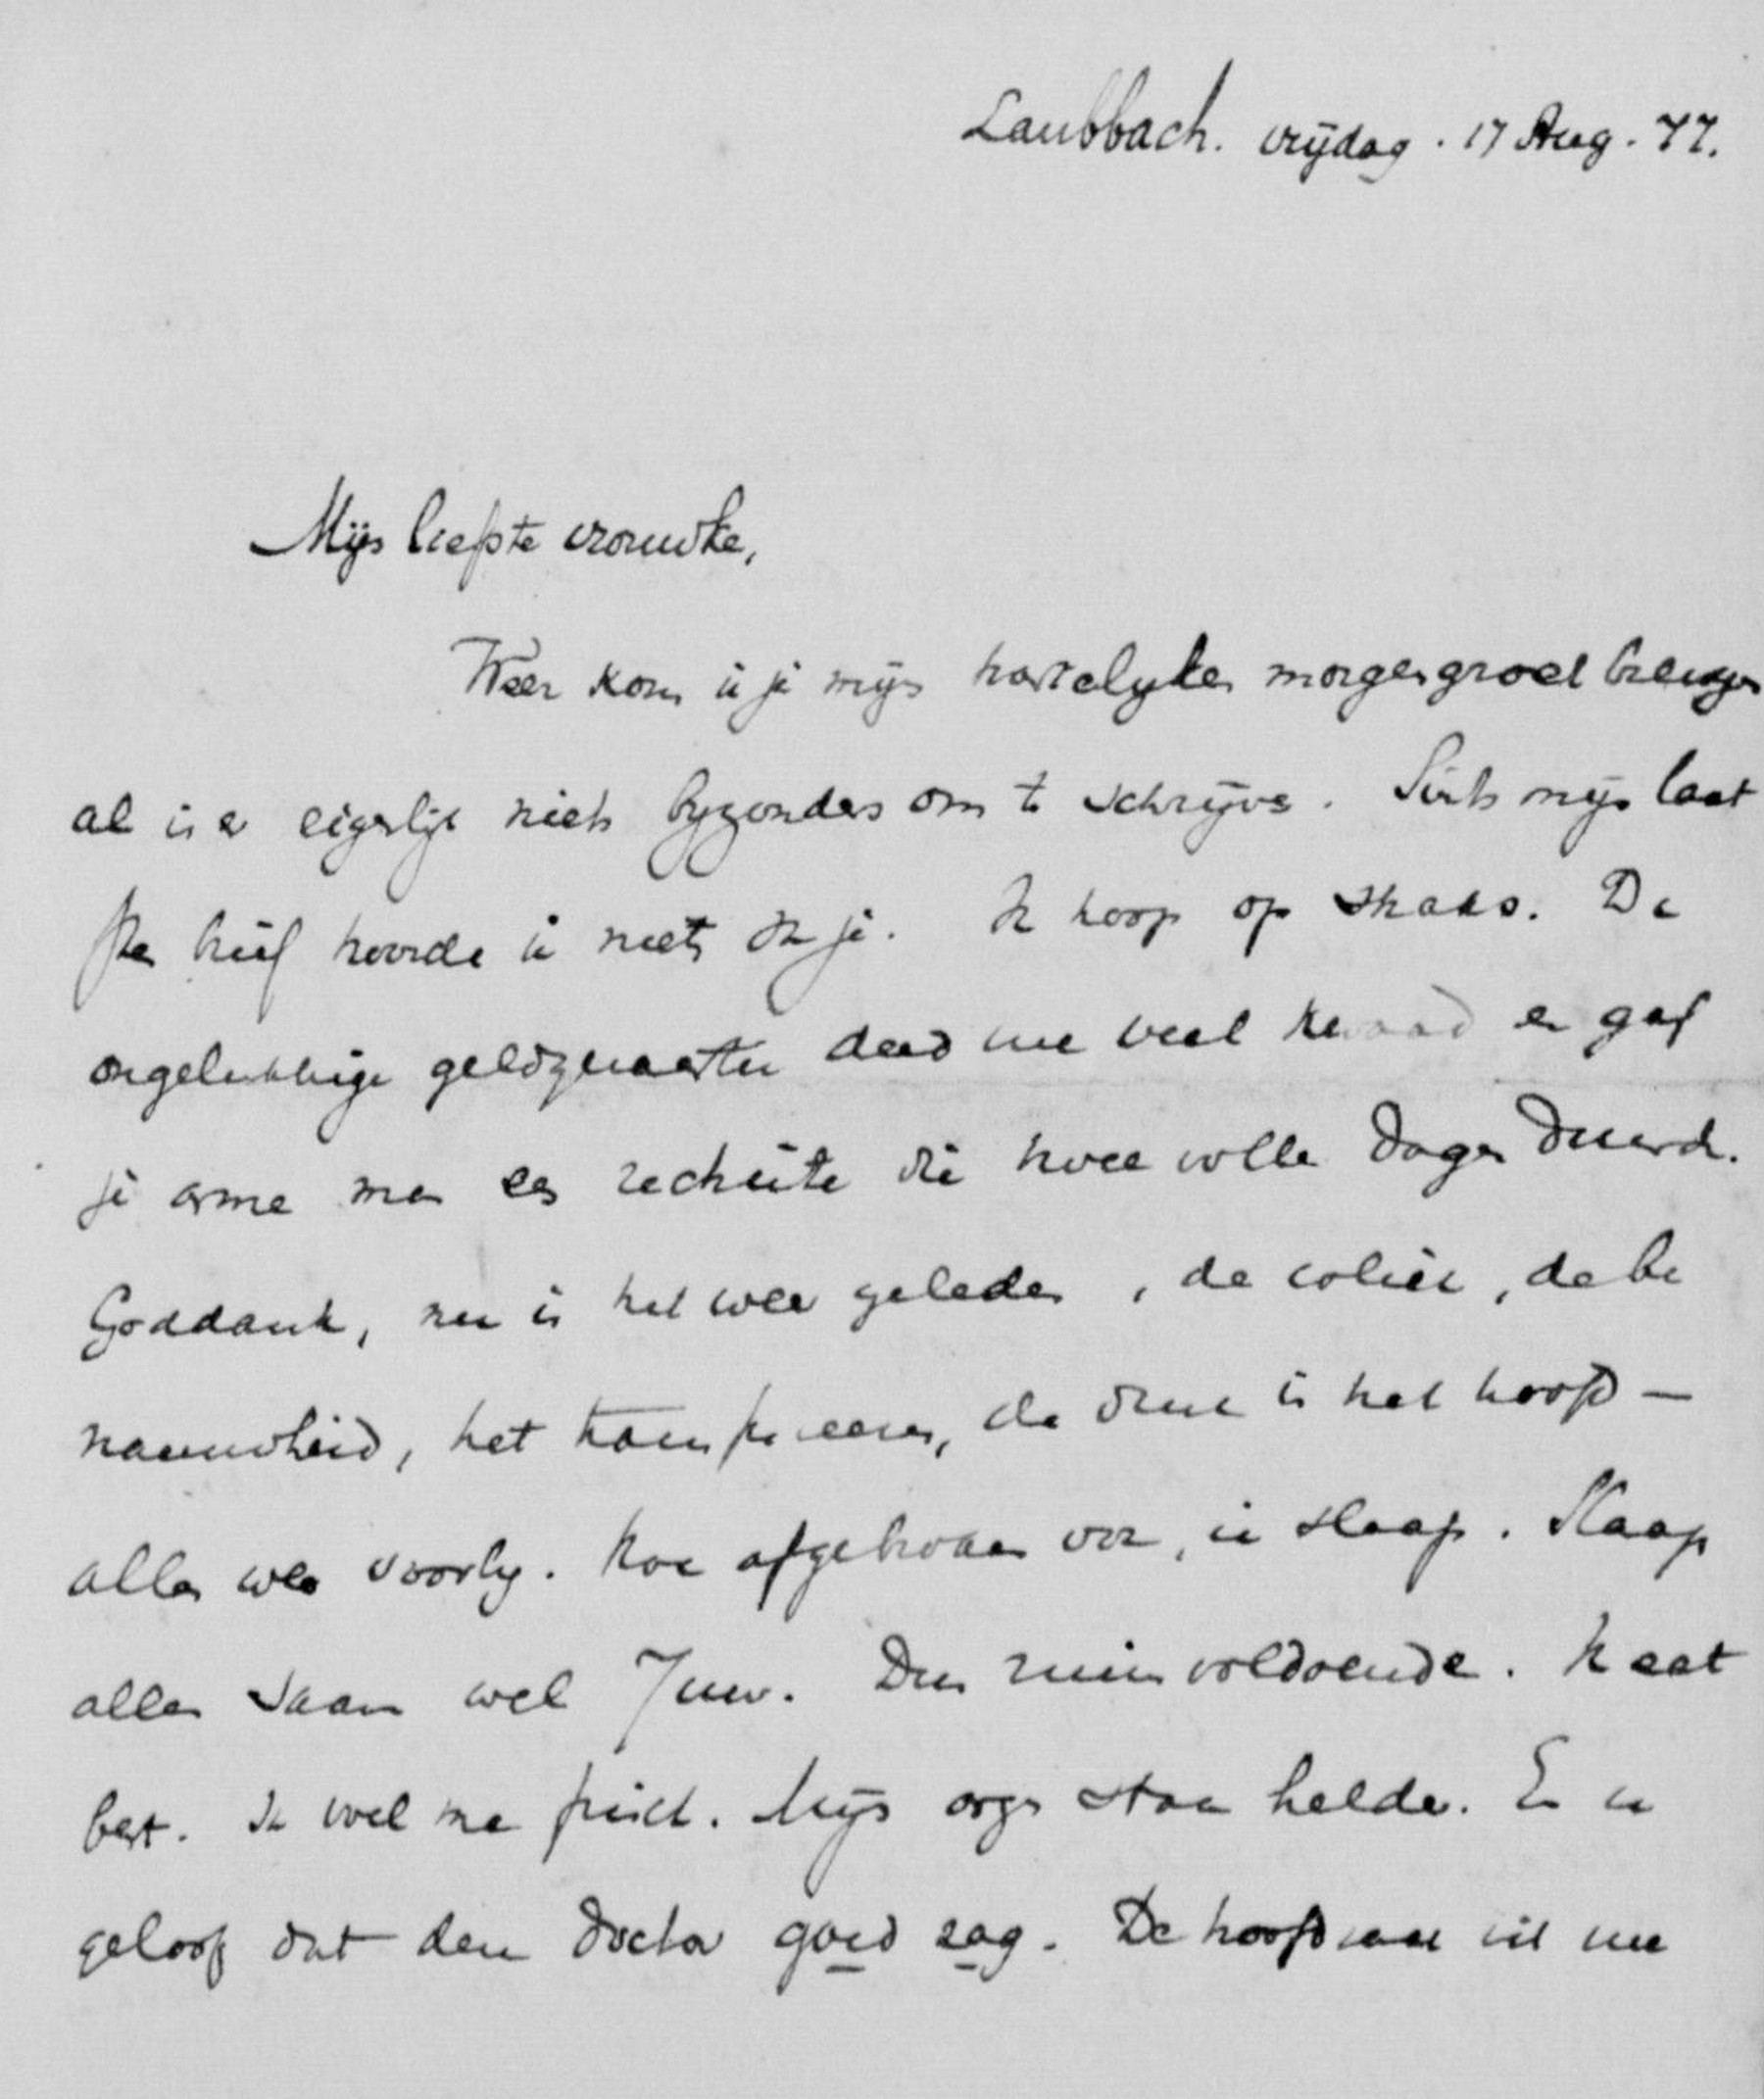 Laubbach. vrijdag. 17 Aug. 77.
Mijn liefste vrouwke,
Weer kom ik je mijn hartelyken morgengroet brengen
al is er eigenlijk niets byzonders om te schrijven. Sints mijn laat
sten brief hoorde ik niets van je. Ik hoop op straks. De
ongelukkige geldzwarten deed me veel kwaad en gaf
je arme man een rechute die twee volle dagen duurde.
Goddank, nu is het weer geleden, de coliek, de be
nauwdheid, het transpireeren, de druk in het hoofd —
alles weer voorby. Hoe afgebroken ook, ik slaap. Slaap
alles saam wel 7 uur. Dus ruim voldoende. Ik eet
best. Ik voel me frisch. Mijn oogen staan helder. En ik
geloof dat den doctor goed zag. De hoofdzaak is nu